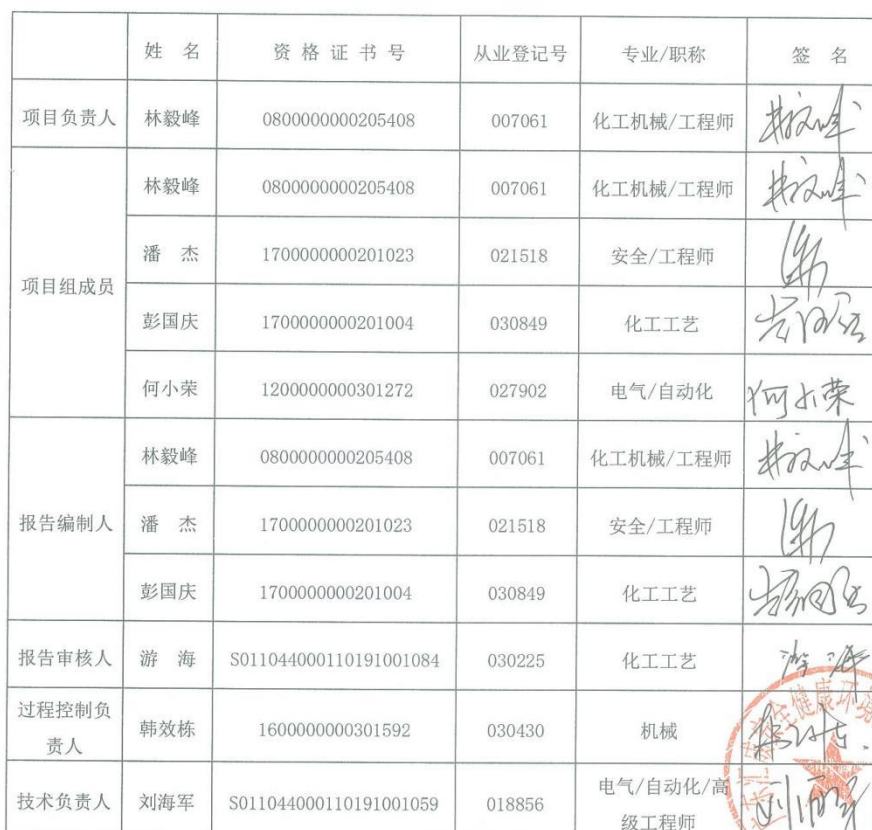 姓 名 资 格 证 书 号 从业登记号 专业/职称 签 名
项目负责人 林毅峰 0800000000205408 007061 化工机械/工程师
项目组成员
林毅峰 0800000000205408 007061 化工机械/工程师
潘 杰 1700000000201023 021518 安全/工程师
彭国庆 1700000000201004 030849 化工工艺
何小荣 1200000000301272 027902 电气/自动化 何小荣
报告编制人
林毅峰 0800000000205408 007061 化工机械/工程师
潘 杰 1700000000201023 021518 安全/工程师
彭国庆 1700000000201004 030849 化工工艺
报告审核人 游 海 S011044000110191001084 030225 化工工艺 游海
过程控制负
责人
韩效栋 1600000000301592 030430 机械
技术负责人 刘海军 S011044000110191001059 018856
电气/自动化/高
级工程师